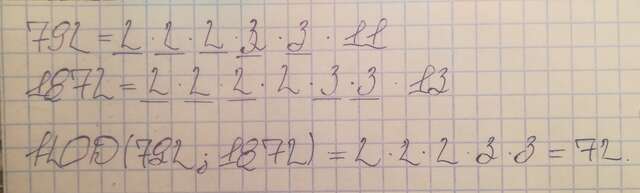 792 = 2 · 2 · 2 · 3 · 3 · 11
1872 = 2 · 2 · 2 · 2 · 3 · 3 · 13
НОД(792; 1872) = 2 · 2 · 2 · 3 · 3 = 72.